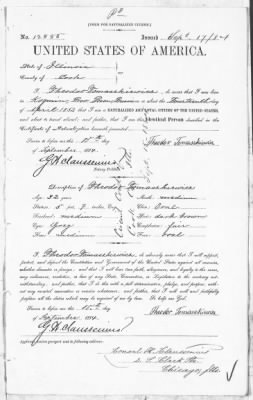 [FORM FOR NATURALIZED CITIZEN.]
No. 12855 Issued Sept. 17/84
UNITED STATES OF AMERICA.
State of Illinois
County of Cook
I, Theodor Tomaszkiewicz, do swear that I was born in
on the Fourteenth day
of April 1852; that I am a NATURALIZED AND LOYAL CITIZEN OF THE UNITED STATES,
and about to travel abroad; and further, that I am the Identical Person described in the
Certificate of Naturalization herewith presented.
Sworn to before me this 15th day
of September 1884.
Theodor Tomaszkiewicz
G. H. Claussenius
Notary Public.
Description of Theodor Tomaszkiewicz
Age: 32 years
Mouth: medium
Stature: 5 ft. 7 inches Eng.
Chin: Oval
Forehead: medium
Hair: dark brown
Eyes: Grey
Complexion: fair
Nose: medium
Face: oval
I, Theodor Tomaszkiewicz, do solemnly swear that I will support,
protect, and defend the Constitution and Government of the United States against all enemies,
whether domestic or foreign; and that I will bear true faith, allegiance, and loyalty to the same,
any ordinance, resolution, or law of any State, Convention, or Legislature to the contrary notwithstanding;
and further, that I do this with a full determination, pledge, and purpose, without
any mental reservation or evasion whatsoever; and further, that I will well and faithfully
perform all the duties which may be required of me by law. So help me God.
Sworn to before me this 15th day
of September 1884.
Theodor Tomaszkiewicz
G. H. Claussenius
Applicant desires passport sent to following address:
Consul H. Claussenius
2 S. Clark Str.
Chicago, Ills.